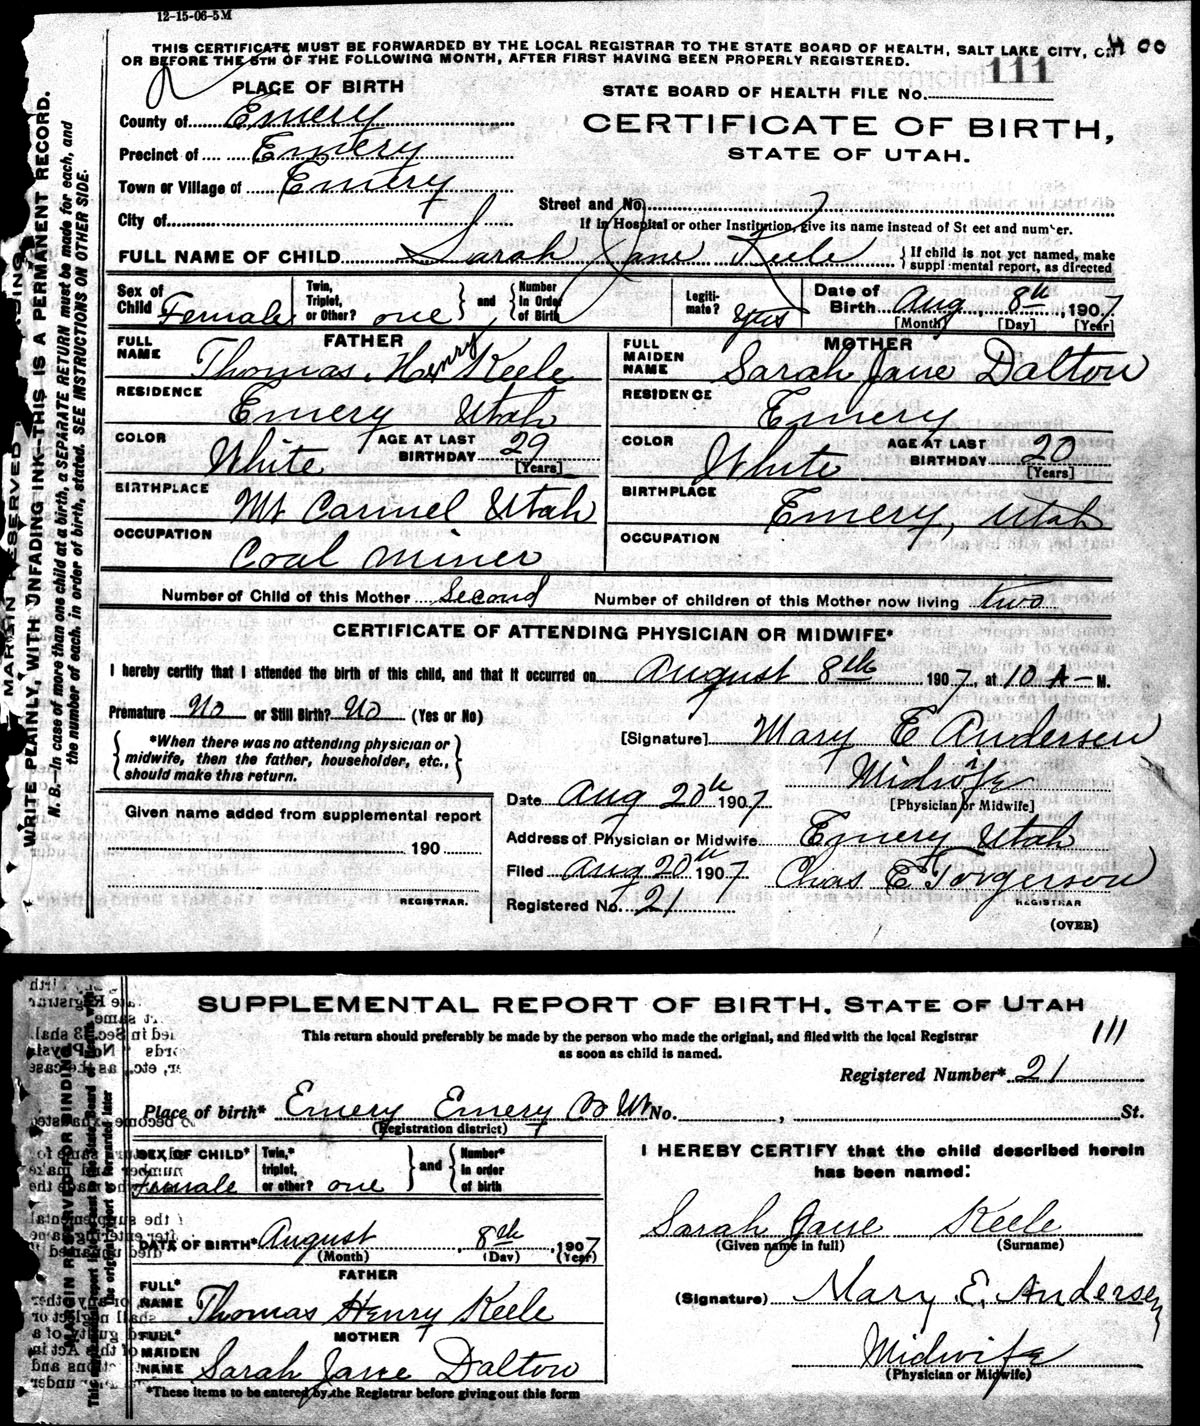 12-15-06-5M
THIS CERTIFICATE MUST BE FORWARDED BY THE LOCAL REGISTRAR TO THE STATE BOARD OF HEALTH, SALT LAKE CITY, ON
OR BEFORE THE 5TH OF THE FOLLOWING MONTH, AFTER FIRST HAVING BEEN PROPERLY REGISTERED.
111
PLACE OF BIRTH
STATE BOARD OF HEALTH FILE No.
County of Emery
CERTIFICATE OF BIRTH,
Precinct of Emery
STATE OF UTAH.
Town or Village of Emery
Street and No.
City of
If in Hospital or other Institution, give its name instead of St eet and number.
FULL NAME OF CHILD Sarah Jane Keele
If child is not yet named, make
suppl mental report, as directed
Sex of Child Female
Twin, Triplet, or Other? one
and
Number In Order of Birth
Legitimate? Yes
Date of Birth Aug 8th, 1907
[Month] [Day] [Year]
FATHER
FULL NAME Thomas Henry Keele
RESIDENCE Emery Utah
COLOR White
AGE AT LAST BIRTHDAY 29
[Years]
BIRTHPLACE Mt Carmel Utah
OCCUPATION Coal miner
MOTHER
FULL MAIDEN NAME Sarah Jane Dalton
RESIDENCE Emery
COLOR White
AGE AT LAST BIRTHDAY 20
[Years]
BIRTHPLACE Emery, Utah
OCCUPATION
Number of Child of this Mother Second
Number of children of this Mother now living two
CERTIFICATE OF ATTENDING PHYSICIAN OR MIDWIFE*
I hereby certify that I attended the birth of this child, and that it occurred on August 8th 1907, at 10 A-M.
Premature No or Still Birth? No (Yes or No)
[Signature] Mary E Andersen
*When there was no attending physician or
midwife, then the father, householder, etc.,
should make this return.
Midwife
[Physician or Midwife]
Date Aug 20th 1907
Given name added from supplemental report
190
REGISTRAR.
Address of Physician or Midwife Emery Utah
Filed Aug 20th 1907
Chas E Torgerson
REGISTRAR
Registered No. 21
(OVER)
WRITE PLAINLY, WITH UNFADING INK—THIS IS A PERMANENT RECORD.
N. B.—In case of more than one child at a birth, a SEPARATE RETURN must be made for each, and
the number of each, in order of birth, stated. SEE INSTRUCTIONS ON OTHER SIDE.
SUPPLEMENTAL REPORT OF BIRTH, STATE OF UTAH
This return should preferably be made by the person who made the original, and filed with the local Registrar
as soon as child is named.
111
Registered Number* 21
Place of birth* Emery Emery Co Ut No. , St.
(Registration district)
SEX OF CHILD* Female
Twin,* triplet, or other? one
and
Number* in order of birth
DATE OF BIRTH* August 8th, 1907
(Month) (Day) (Year)
FATHER
FULL* NAME Thomas Henry Keele
MOTHER
FULL* MAIDEN NAME Sarah Jane Dalton
*These items to be entered by the Registrar before giving out this form
I HEREBY CERTIFY that the child described herein
has been named:
Sarah Jane Keele
(Given name in full) (Surname)
(Signature) Mary E. Andersen
Midwife
(Physician or Midwife)